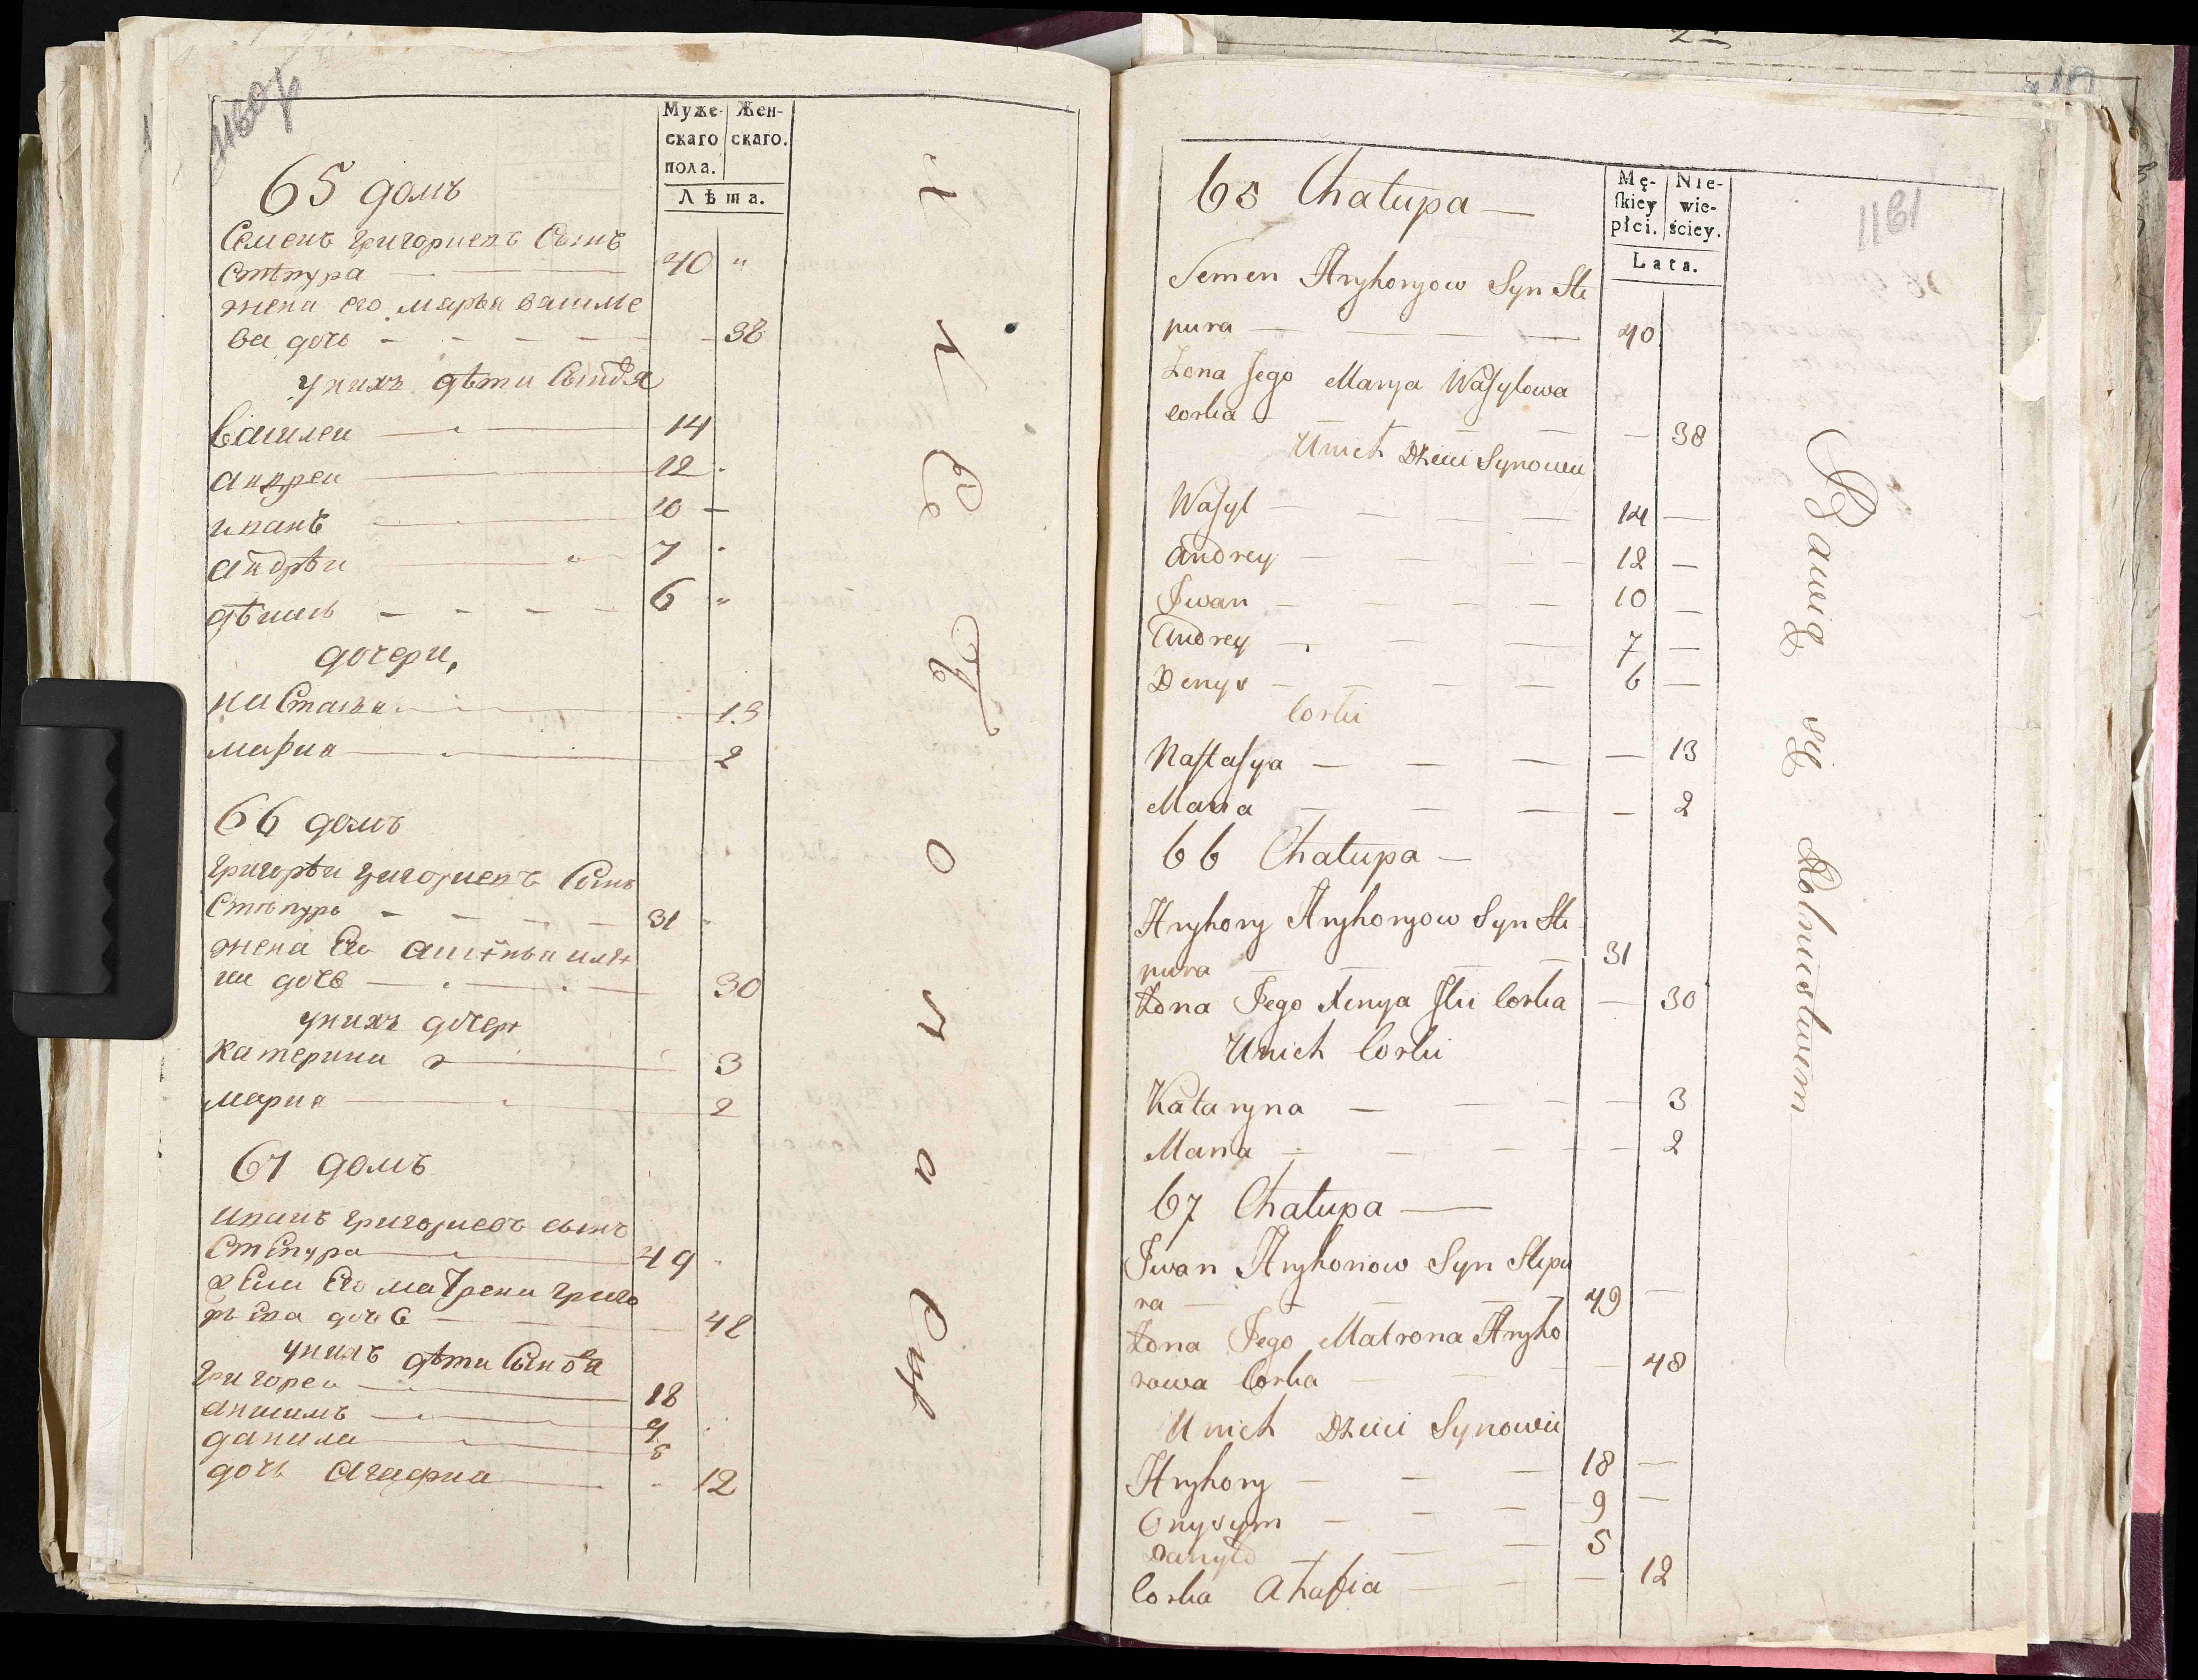 Муже-
скаго
пола.
Жен-
скаго.
Лѣта.
65 домъ
Семенъ григориевъ Сынъ
Стѣпура — 40 "
жена его марья василе
ва дочь - - - - - 38
унихъ дѣти Сыновя
василеи — 14
андреи — 12
иванъ — 10 —
андрѣи — 7
дѣнисъ - - - - 6 "
дочери,
настасья — 13
мариа — 2
66 домъ
григорѣи григориевъ Сынъ
Стѣпура - - - - 31
жена Его
дочь — 30
унихъ дочери
катерина — 3
мариа — 2
67 домъ
иванъ григориевъ сынъ
Степура — 49
жена Его матрена григо
рьева дочь — 48
унихъ дѣти Сынова
григореи — 18
анисимъ — 9
данила — 5
дочь агафиа — 12
1161
Mę-
ſkiey
płci.
Nie-
wie-
ściey.
Lata.
65 Chałupa —
Semen Hryhoryow Syn Ste
pura — 40
Żona Jego Marya Waſylowa
corka — — 38
Unich Dzieci Synowie
Waſyl — — — — 14 —
Andrey — — — 12 —
Iwan — — — — 10 —
Andrey — — — 7 —
Denys — — — — 6 —
Corki
Naſtaſya — — — — 13
Maria — — — — 2
66 Chałupa —
Hryhory Hryhoryow Syn Ste
pura — — — — 31
Żona Jego Xenya Ilii Corka — 30
Unich Corki
Kataryna — — — — 3
Maria — — — — 2
67 Chałupa —
Iwan Hryhoriow Syn Stepu
ra — — — — 49 —
Żona Jego Matrona Hryho
rowa Corka — — — 48
Unich Dzieci Synowie
Hryhory — — — 18 —
Onysym — — — 9 —
Danyło — — — 5
Corka Ahafia — — — 12
Bawią się Rolnictwem